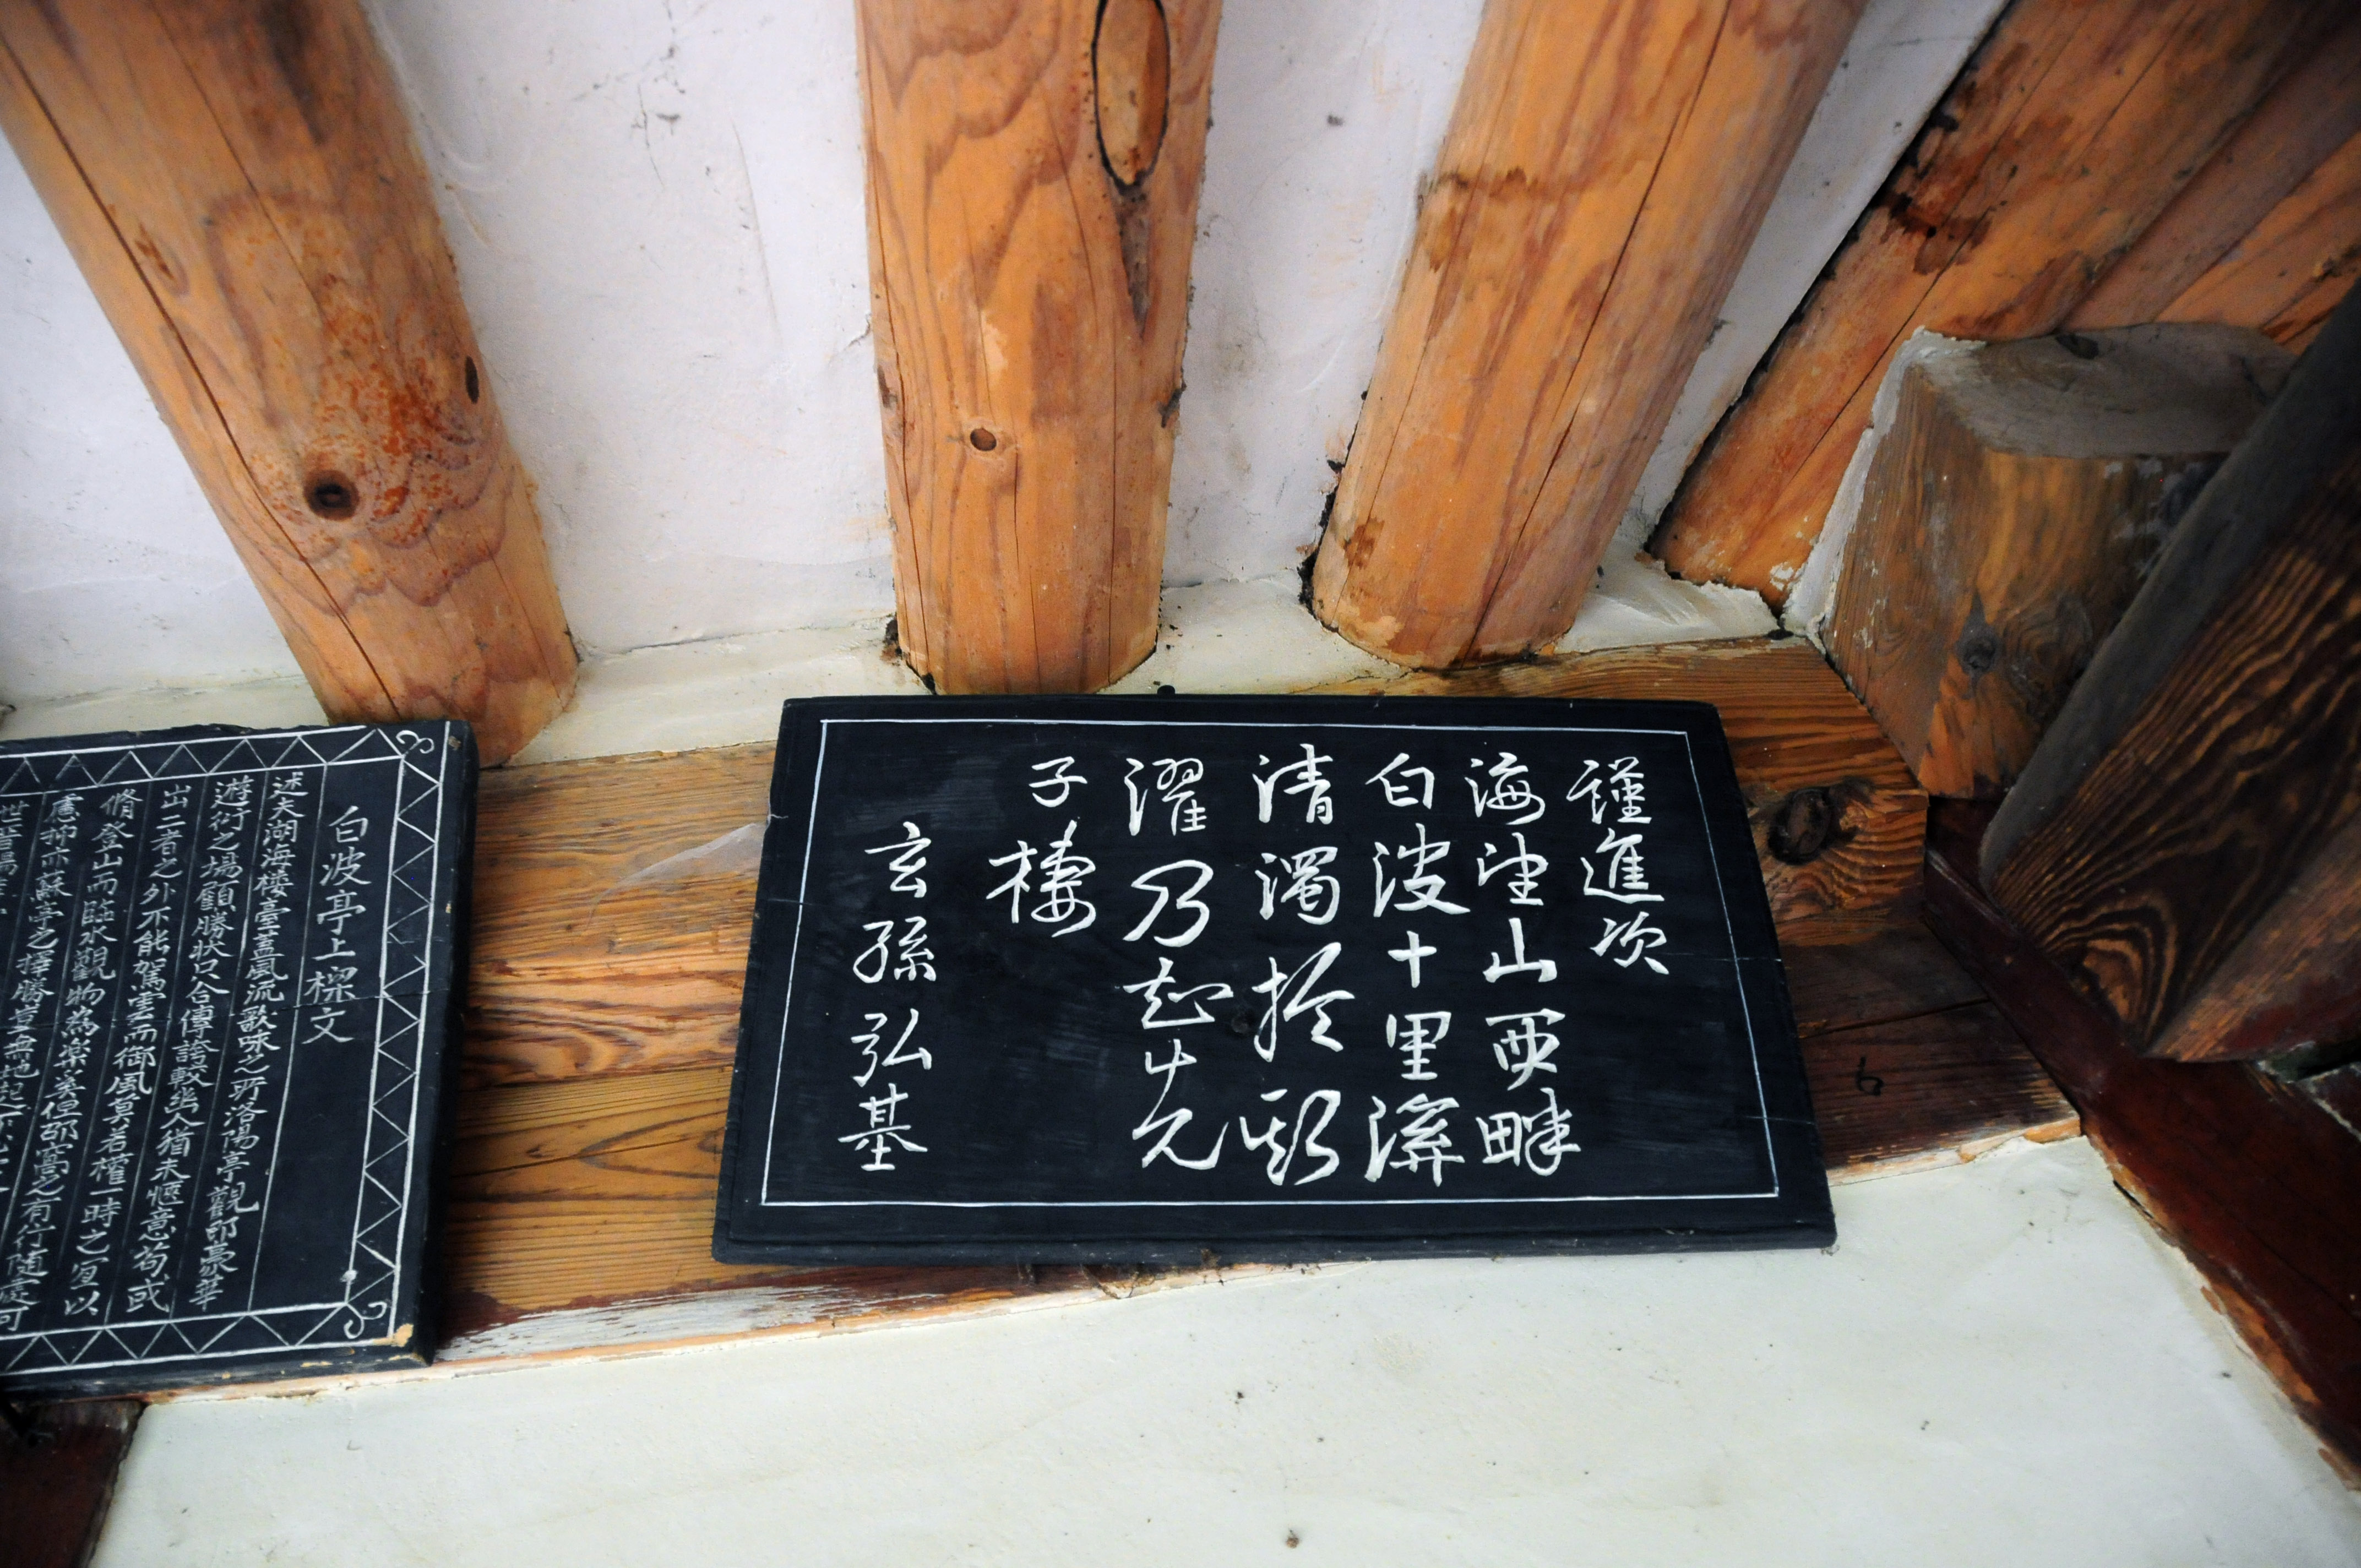 謹進次
海望山西畔
白波十里
清濁於斯
濯乃知先
子棲
玄孫弘基
白波亭上樑文
述夫湖海楼臺蓋風流歌咏之所洛陽亭觀即豪華
遊衍之場顧勝状只合傳誇較幽人猶未愜意苟或
出二者之外不能駕雲而御風莫若權一時之宜以
脩登山而臨水觀物為楽奚但邵窩之有行随處可
慮抑亦蘇亭之擇勝